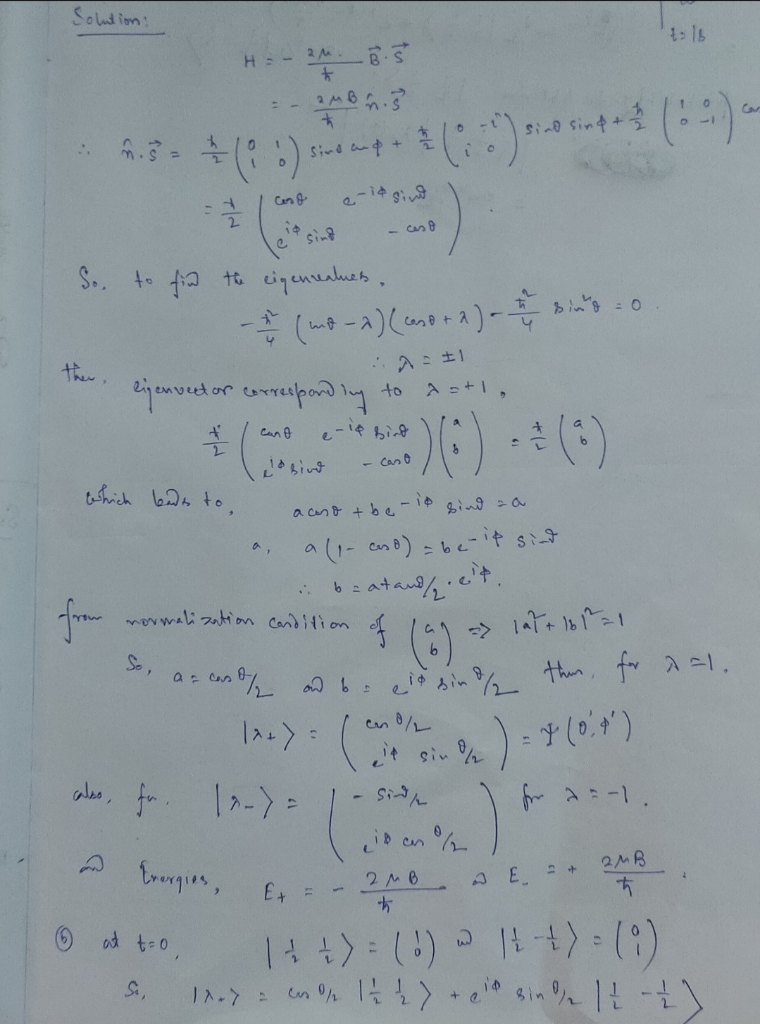 Solution:
t=1s
H = - 2μ/ħ B⃗.S⃗
= - 2μB/ħ n̂.S⃗
∴ n̂.S⃗ = ħ/2 (0 1; 1 0) sinθ cosφ + ħ/2 (0 -i; i 0) sinθ sinφ + ħ/2 (1 0; 0 -1) cos
= ħ/2 (cosθ e^{-iφ} sinθ; e^{iφ} sinθ - cosθ).
So, to find the eigenvalues,
- ħ²/4 (cosθ - λ)(cosθ + λ) - ħ²/4 sin²θ = 0.
∴ λ = ±1
then, eigenvector corresponding to λ = +1,
ħ/2 (cosθ e^{-iφ} sinθ; e^{iφ} sinθ - cosθ)(a; b) = ħ/2 (a; b)
which leads to, a cosθ + b e^{-iφ} sinθ = a
a, a(1 - cosθ) = b e^{-iφ} sinθ
∴ b = a tanθ/2 . e^{iφ}.
from normalization condition of (a; b) => |a|² + |b|² = 1
So, a = cos θ/2 and b = e^{iφ} sin θ/2 thus, for λ = 1.
|λ+> = (cos θ/2; e^{iφ} sin θ/2) = Ψ(θ', φ')
also, for |λ-> = (- sin θ/2; e^{iφ} cos θ/2) for λ = -1.
and Energies, E+ = - 2μB/ħ and E- = + 2μB/ħ.
(b) at t=0, |1/2 1/2> = (1; 0) and |1/2 -1/2> = (0; 1)
So, |λ+> = cos θ/2 |1/2 1/2> + e^{iφ} sin θ/2 |1/2 -1/2>